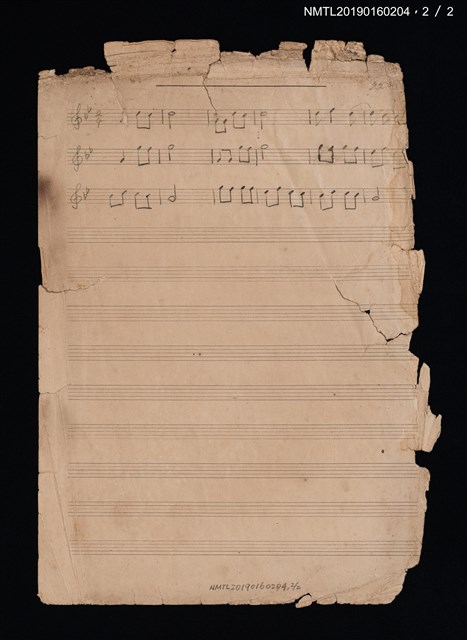 NMTL20190160204，2 / 2
NMTL20190160204, 2/2